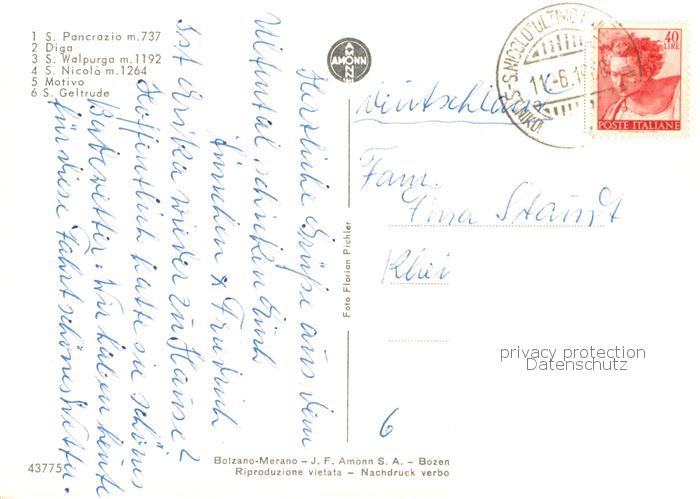 1 S. Pancrazio m.737
2 Diga
3 S. Walpurga m.1192
4 S. Nicolò m.1264
5 Motivo
6 S. Geltrude
AMONN
AMONN
S. NICOLÒ ULTIMO
11.-6.19
40
LIRE
POSTE ITALIANE
Deutschland
Fam.
Tina Staudt
6
Herzliche Grüße aus dem
Ultental schicken Euch
Ännchen & Friedrich
Ist Erika wieder zu Hause?
Hoffentlich hatte sie schönes
Badewetter. Wir haben heute
für diese Fahrt schönes Wetter.
Foto Florian Pichler
privacy protection
Datenschutz
Bolzano-Merano – J. F. Amonn S. A. – Bozen
Riproduzione vietata – Nachdruck verbo
43775